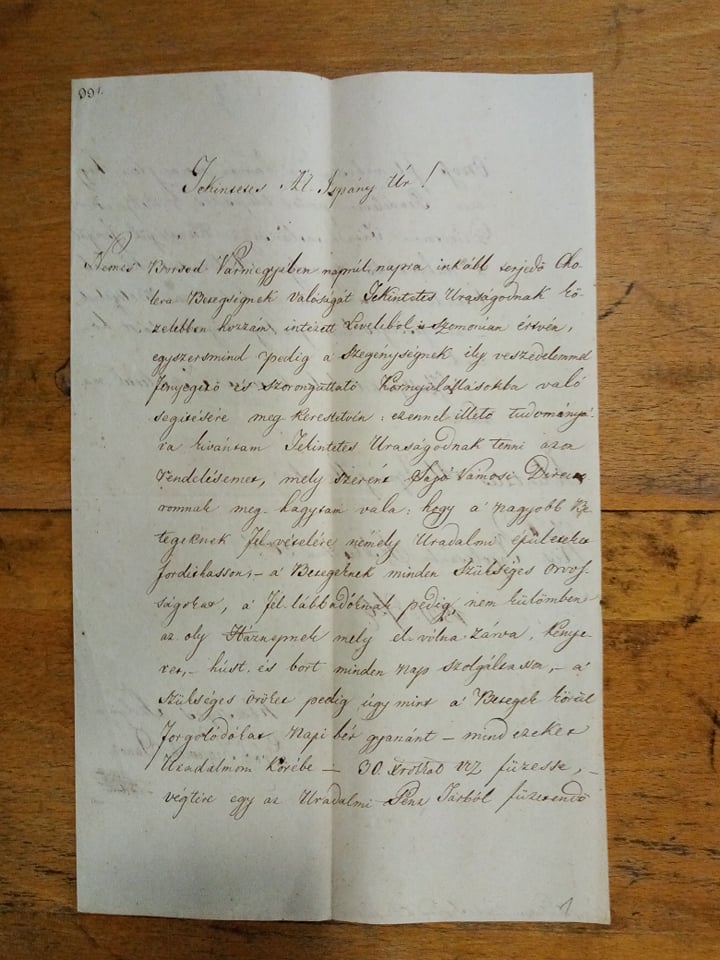 991.
Tekintetes Al-Ispány Úr!
Nemes Borsod Vármegyében naprúl, napra inkább terjedő Cho-
lera Betegségnek valóságát Tekintetes Uraságodnak kö-
zelebben hozzám intézett Leveléből is szomorúan értvén,
egyszersmind pedig a szegénységnek ily veszedelemmel
fenyegető és szorongattató Környülállásokba való
segitésére meg kerestetvén: ezennel illető tudományá-
ra kivántam Tekintetes Uraságodnak tenni azon
rendelésemet, mely szerént Sajó Vámosi Direc
romnak meg-hagytam vala: hogy a' nagyobb Be-
tegeknek fel-vételére némely Uradalmi épületeket
fordithasson, – a' Betegeknek minden szükséges orvos-
ságokat, a' fel-lábbadóknak pedig, nem külömben
az oly Háznépnek mely el-vólna zárva, kenye-
ret, – húst és bort minden nap szolgáltassa, – a'
szükséges öröket pedig úgy mint a' Betegek körül
forgolódókat napi bér gyanánt – mind ezeket
Uradalmom Körébe – 30. Xrokkal fizesse, –
végtére egy az Uradalmi Pénz Tárból fizetendő
1